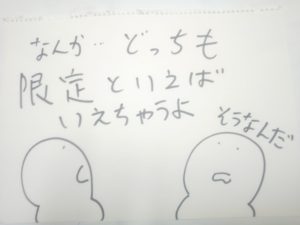 なんか… どっちも
限定といえば
いえちゃうよ
そうなんだ